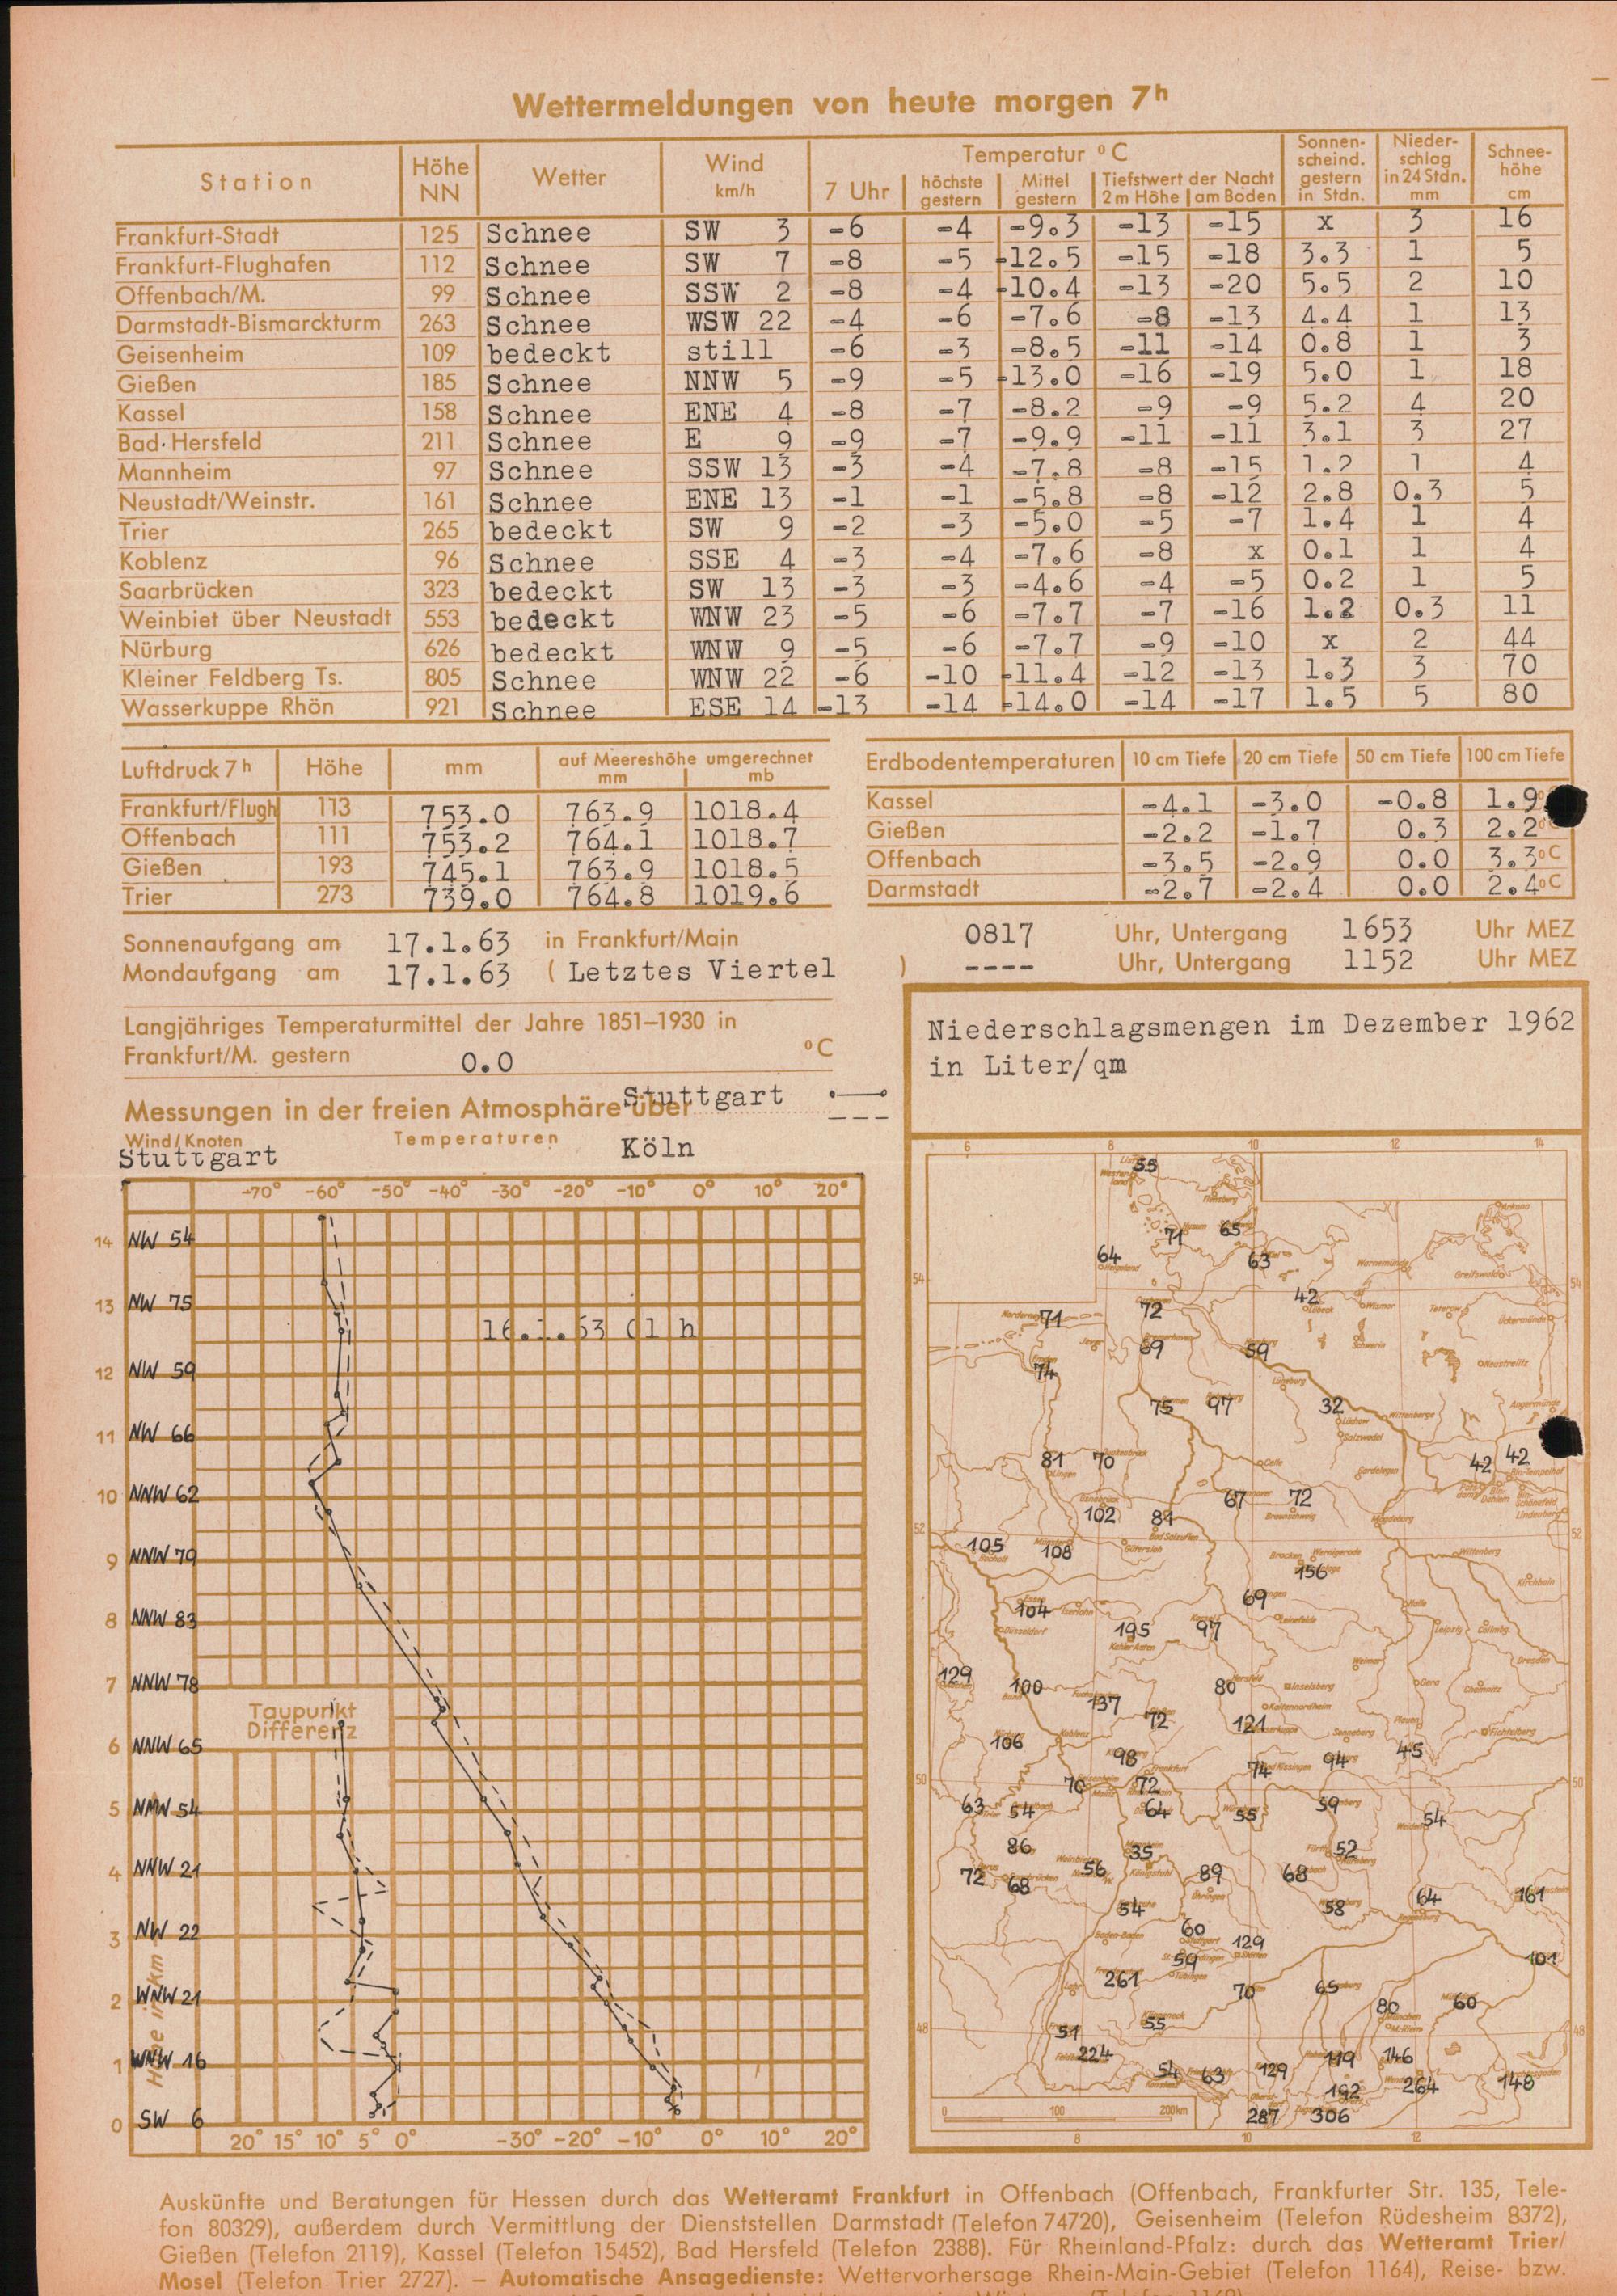 Wettermeldungen von heute morgen 7h
Station Höhe NN Wetter Wind km/h Temperatur °C Sonnenscheind. gestern in Stdn. Niederschlag in 24 Stdn. mm Schneehöhe cm
7 Uhr höchste gestern Mittel gestern Tiefstwert der Nacht 2 m Höhe am Boden
Frankfurt-Stadt 125 Schnee SW 3 -6 -4 -9.3 -13 -15 x 3 16
Frankfurt-Flughafen 112 Schnee SW 7 -8 -5 -12.5 -15 -18 3.3 1 5
Offenbach/M. 99 Schnee SSW 2 -8 -4 -10.4 -13 -20 5.5 2 10
Darmstadt-Bismarckturm 263 Schnee WSW 22 -4 -6 -7.6 -8 -13 4.4 1 13
Geisenheim 109 bedeckt still -6 -3 -8.5 -11 -14 0.8 1 3
Gießen 185 Schnee NNW 5 -9 -5 -13.0 -16 -19 5.0 1 18
Kassel 158 Schnee ENE 4 -8 -7 -8.2 -9 -9 5.2 4 20
Bad Hersfeld 211 Schnee E 9 -9 -7 -9.9 -11 -11 3.1 3 27
Mannheim 97 Schnee SSW 13 -3 -4 -7.8 -8 -15 1.2 1 4
Neustadt/Weinstr. 161 Schnee ENE 13 -1 -1 -5.8 -8 -12 2.8 0.3 5
Trier 265 bedeckt SW 9 -2 -3 -5.0 -5 -7 1.4 1 4
Koblenz 96 Schnee SSE 4 -3 -4 -7.6 -8 x 0.1 1 4
Saarbrücken 323 bedeckt SW 13 -3 -3 -4.6 -4 -5 0.2 1 5
Weinbiet über Neustadt 553 bedeckt WNW 23 -5 -6 -7.7 -7 -16 1.2 0.3 11
Nürburg 626 bedeckt WNW 9 -5 -6 -7.7 -9 -10 x 2 44
Kleiner Feldberg Ts. 805 Schnee WNW 22 -6 -10 -11.4 -12 -13 1.3 3 70
Wasserkuppe Rhön 921 Schnee ESE 14 -13 -14 -14.0 -14 -17 1.5 5 80
Luftdruck 7h Höhe mm auf Meereshöhe umgerechnet mm mb
Frankfurt/Flugh 113 753.0 763.9 1018.4
Offenbach 111 753.2 764.1 1018.7
Gießen 193 745.1 763.9 1018.5
Trier 273 739.0 764.8 1019.6
Erdbodentemperaturen 10 cm Tiefe 20 cm Tiefe 50 cm Tiefe 100 cm Tiefe
Kassel -4.1 -3.0 -0.8 1.9
Gießen -2.2 -1.7 0.3 2.2
Offenbach -3.5 -2.9 0.0 3.3°C
Darmstadt -2.7 -2.4 0.0 2.4°C
Sonnenaufgang am 17.1.63 in Frankfurt/Main 0817 Uhr, Untergang 1653 Uhr MEZ
Mondaufgang am 17.1.63 (Letztes Viertel ) ---- Uhr, Untergang 1152 Uhr MEZ
Langjähriges Temperaturmittel der Jahre 1851–1930 in
Frankfurt/M. gestern 0.0 °C
Messungen in der freien Atmosphäre über Stuttgart
Wind/Knoten Temperaturen Köln
Stuttgart
-70° -60° -50° -40° -30° -20° -10° 0° 10° 20°
14 NW 54
13 NW 75
16.1.63 01 h
12 NW 59
11 NW 66
10 NNW 62
9 NNW 79
8 NNW 83
7 NNW 78
Taupunkt
Differenz
6 NNW 65
5 NNW 54
4 NNW 21
3 NW 22
2 WNW 21
1 WNW 16
0 SW 6
Höhe in km
20° 15° 10° 5° 0° -30° -20° -10° 0° 10° 20°
Niederschlagsmengen im Dezember 1962
in Liter/qm
6 8 10 12 14
55
71 65
64 63
54 42 54
71 72
69 59
74
75 97 32
81 70 42 42
67 72
102 81
52 105 108 52
156
104 69
195 97
129 100 80
137 72 121
106 98 94 45
74
50 70 72 50
63 54 64 55 59 54
86 35 52
72 68 56 89 68
54 58 64 161
60 129
59 101
261 70 65
80 60
48 51 55 48
224 119 146
54 63 129
192 264 148
287 306
0 100 200 km
8 10 12
Auskünfte und Beratungen für Hessen durch das Wetteramt Frankfurt in Offenbach (Offenbach, Frankfurter Str. 135, Tele-
fon 80329), außerdem durch Vermittlung der Dienststellen Darmstadt (Telefon 74720), Geisenheim (Telefon Rüdesheim 8372),
Gießen (Telefon 2119), Kassel (Telefon 15452), Bad Hersfeld (Telefon 2388). Für Rheinland-Pfalz: durch das Wetteramt Trier/
Mosel (Telefon Trier 2727). — Automatische Ansagedienste: Wettervorhersage Rhein-Main-Gebiet (Telefon 1164), Reise- bzw.